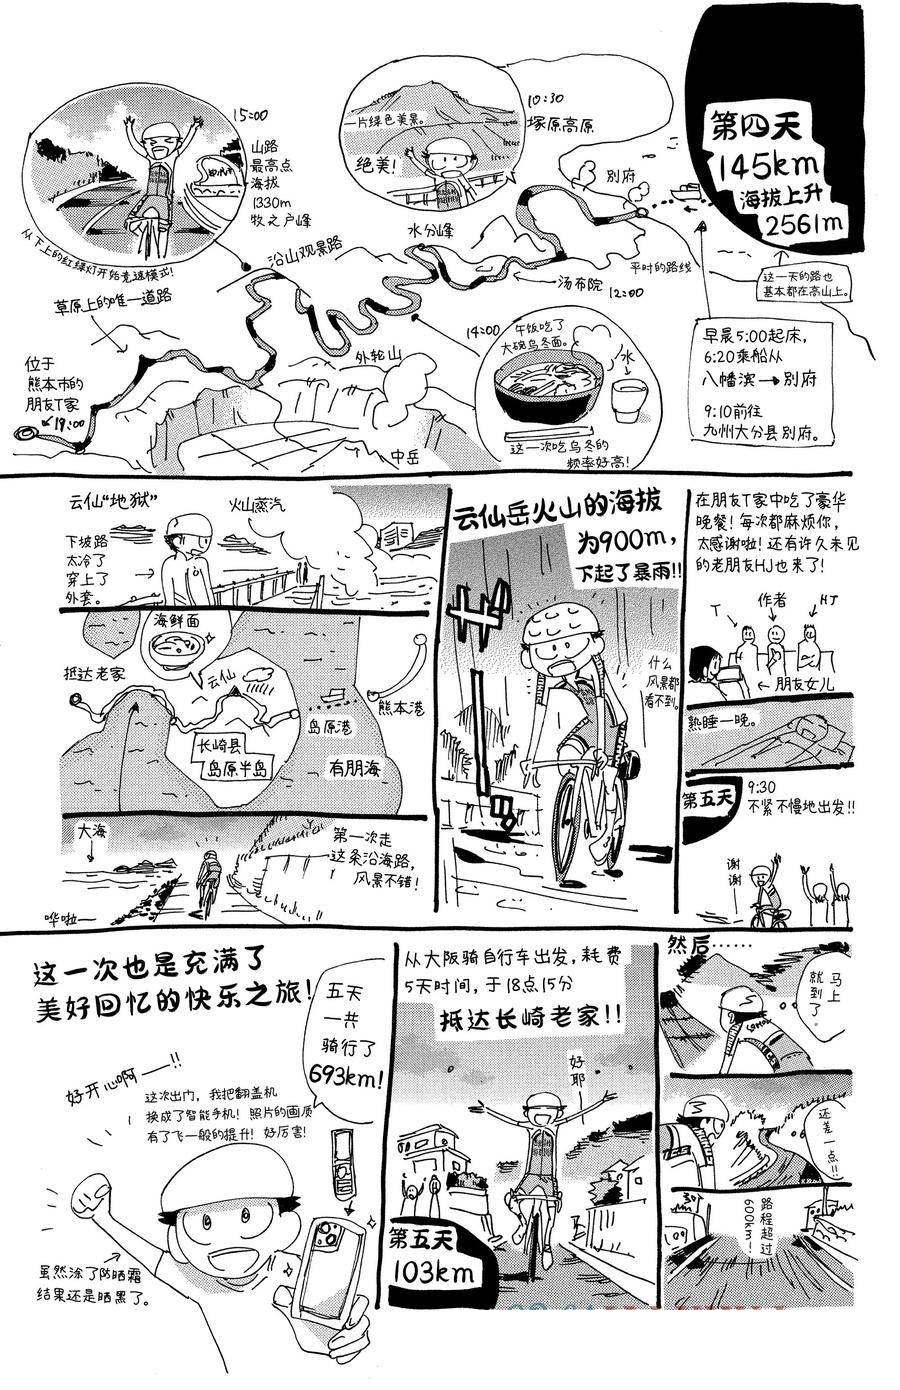 第四天
145km
海拔上升
2561m
这一天的路也
基本都在高山上。
早晨5:00起床，
6:20乘船从
八幡滨→別府
9:10前往
九州大分县別府。
平时的路线
別府
10:30
塚原高原
一片绿色美景。
绝美！
汤布院
12:00
水分峰
14:00
午饭吃了
大碗乌冬面。
水
这一次吃乌冬的
频率好高！
15:00
山路
最高点
海拔
1330m
牧之户峰
从下上的红绿灯开始竞速模式！
沿山观景路
外轮山
中岳
草原上的唯一道路
位于
熊本市的
朋友T家
19:00
在朋友T家中吃了豪华
晚餐！每次都麻烦你，
太感谢啦！还有许久未见
的老朋友HJ也来了！
T
作者
HJ
←朋友女儿
熟睡一晚。
第五天
9:30
不紧不慢地出发！！
谢谢
云仙岳火山的海拔
为900m，
下起了暴雨！！
什么
风景都
看不到。
云仙“地狱”
火山蒸汽
下坡路
太冷了
穿上了
外套。
海鲜面
抵达老家
云仙
熊本港
岛原港
长崎县
岛原半岛
有朋海
大海
第一次走
这条沿海路，
风景不错！
哗啦——
然后……
马上
就到了。
还差一点！！
路程超过
600km！
从大阪骑自行车出发，耗费
5天时间，于18点15分
抵达长崎老家！！
好耶
第五天
103km
这一次也是充满了
美好回忆的快乐之旅！
五天
一共
骑行了
693km！
好开心啊——！！
这次出门，我把翻盖机
换成了智能手机！照片的画质
有了飞一般的提升！好厉害！
虽然涂了防晒霜
结果还是晒黑了。